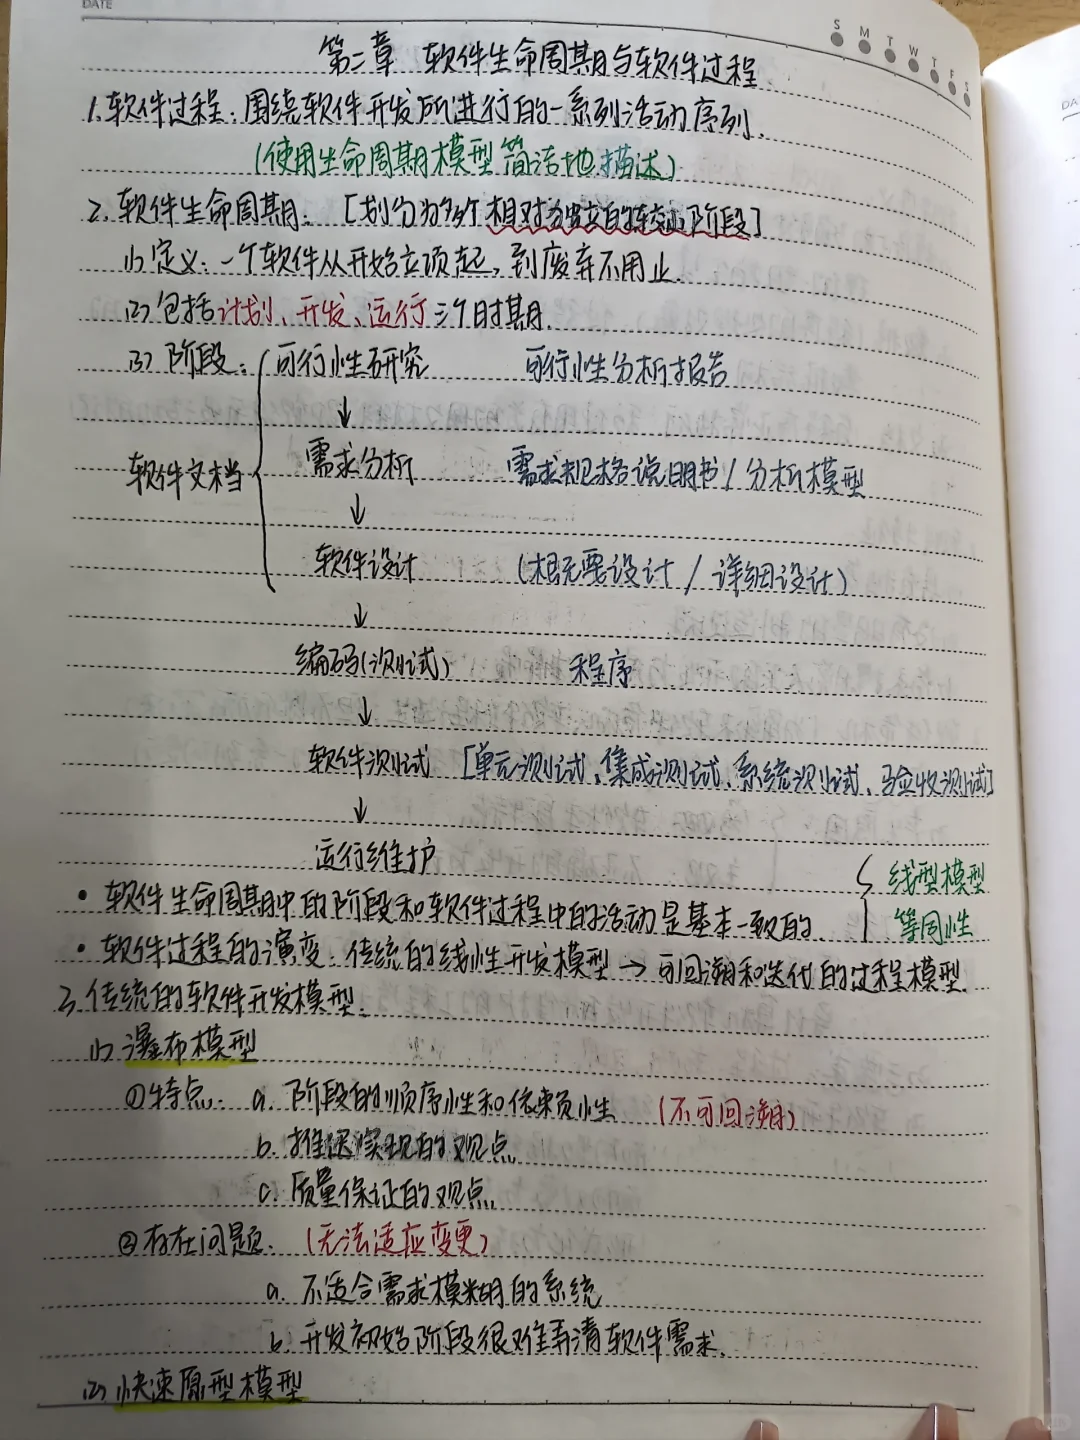 DATE
S M T W T F S
第二章 软件生命周期与软件过程
1.软件过程:围绕软件开发所进行的一系列活动序列.
(使用生命周期模型简洁地描述)
2.软件生命周期:[划分为多个相对独立的 阶段]
(1)定义:一个软件从开始立项起,到废弃不用止.
(2)包括计划、开发、运行三个时期.
(3)阶段:可行性研究 可行性分析报告
↓
软件文档 需求分析 需求规格说明书/分析模型
↓
软件设计 (概要设计/详细设计)
↓
编码(测试) 程序
↓
软件测试 [单元测试、集成测试、系统测试、验收测试]
↓
运行维护
线型模型
• 软件生命周期中的阶段和软件过程中的活动是基本一致的. 等同性
• 软件过程的演变:传统的线性开发模型→可回溯和迭代的过程模型.
3.传统的软件开发模型.
(1)瀑布模型
①特点: a. 阶段的顺序性和依赖性 (不可回溯)
b. 推迟实现的观点
c. 质量保证的观点
②存在问题: (无法适应变更)
a. 不适合需求模糊的系统
b. 开发初始阶段很难弄清软件需求.
(2)快速原型模型